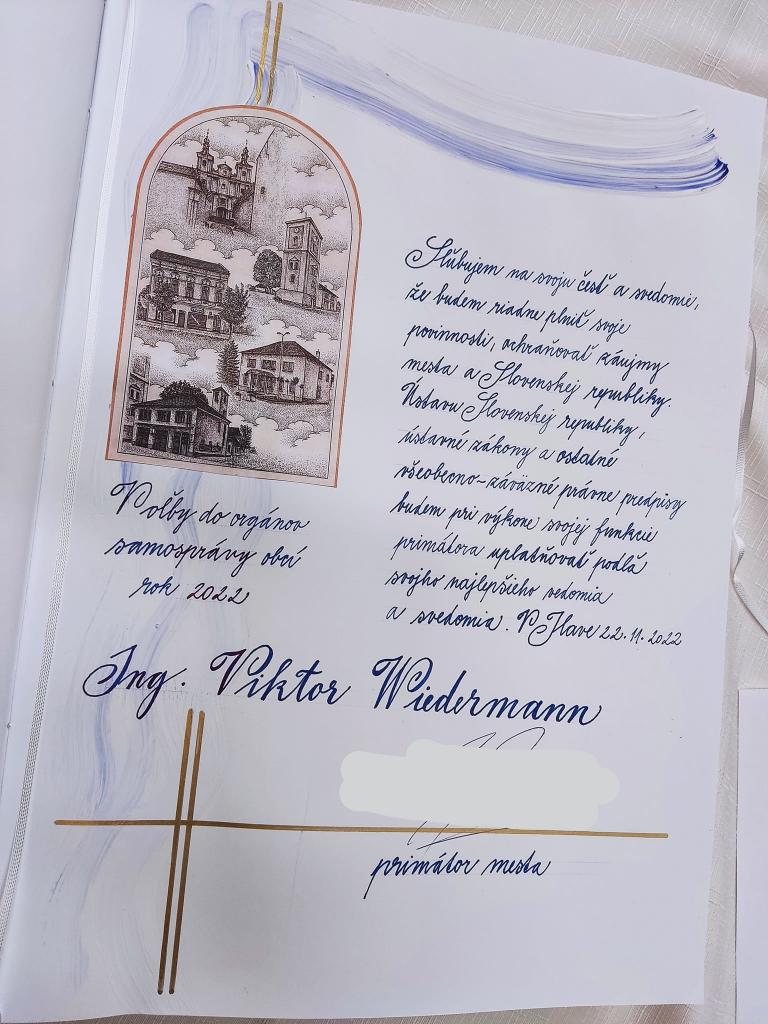 Sľubujem na svoju česť a svedomie,
že budem riadne plniť svoje
povinnosti, ochraňovať záujmy
mesta a Slovenskej republiky.
Ústavu Slovenskej republiky,
ústavné zákony a ostatné
všeobecno-záväzné právne predpisy
budem pri výkone svojej funkcie
primátora uplatňovať podľa
svojho najlepšieho vedomia
a svedomia. V Ilave 22.11.2022
Voľby do orgánov
samosprávy obcí
rok 2022
Ing. Viktor Wiedermann
primátor mesta